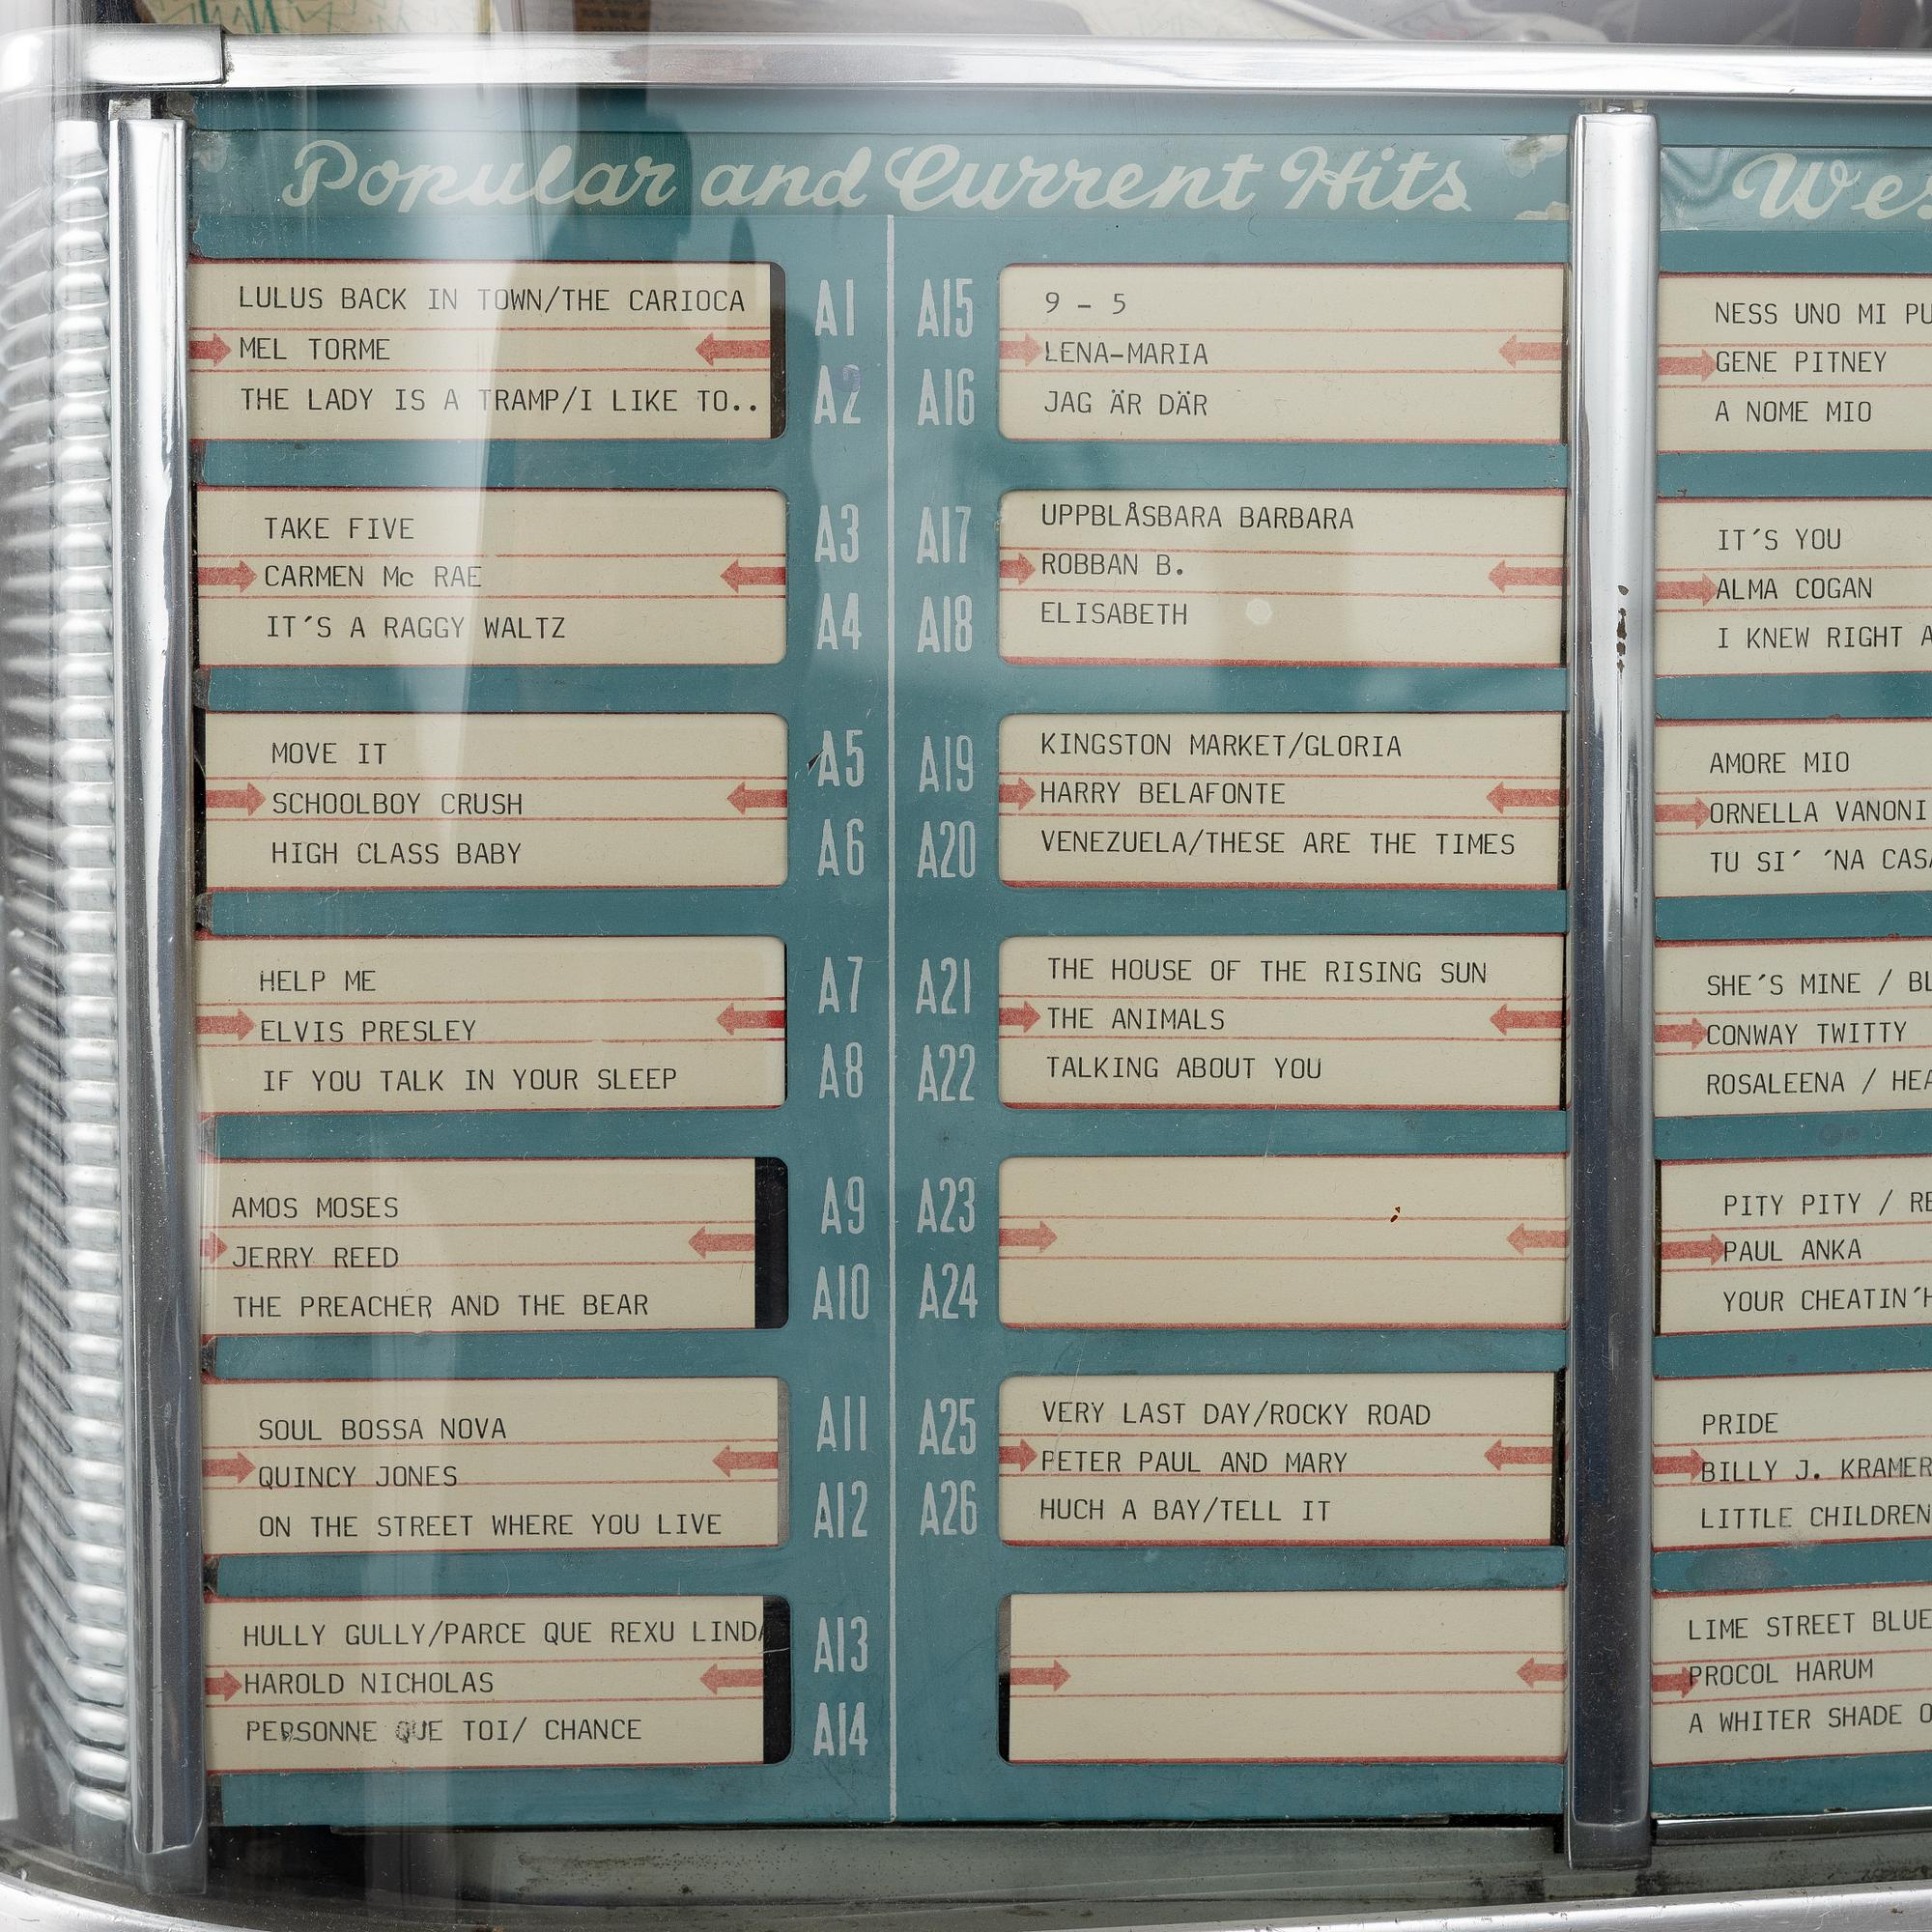 Popular and Current Hits
LULUS BACK IN TOWN/THE CARIOCA
A1
MEL TORME
THE LADY IS A TRAMP/I LIKE TO..
A2
TAKE FIVE
A3
CARMEN Mc RAE
IT´S A RAGGY WALTZ
A4
MOVE IT
A5
SCHOOLBOY CRUSH
HIGH CLASS BABY
A6
HELP ME
A7
ELVIS PRESLEY
IF YOU TALK IN YOUR SLEEP
A8
AMOS MOSES
A9
JERRY REED
THE PREACHER AND THE BEAR
A10
SOUL BOSSA NOVA
A11
QUINCY JONES
ON THE STREET WHERE YOU LIVE
A12
HULLY GULLY/PARCE QUE REXU LINDA
A13
HAROLD NICHOLAS
PERSONNE QUE TOI/ CHANCE
A14
A15
9 - 5
LENA-MARIA
A16
JAG ÄR DÄR
A17
UPPBLÅSBARA BARBARA
ROBBAN B.
A18
ELISABETH
A19
KINGSTON MARKET/GLORIA
HARRY BELAFONTE
A20
VENEZUELA/THESE ARE THE TIMES
A21
THE HOUSE OF THE RISING SUN
THE ANIMALS
A22
TALKING ABOUT YOU
A23
A24
A25
VERY LAST DAY/ROCKY ROAD
PETER PAUL AND MARY
A26
HUCH A BAY/TELL IT
Wes
NESS UNO MI PU
GENE PITNEY
A NOME MIO
IT´S YOU
ALMA COGAN
I KNEW RIGHT A
AMORE MIO
ORNELLA VANONI
TU SI´ ´NA CASA
SHE´S MINE / BL
CONWAY TWITTY
ROSALEENA / HEA
PITY PITY / RE
PAUL ANKA
YOUR CHEATIN´H
PRIDE
BILLY J. KRAMER
LITTLE CHILDREN
LIME STREET BLUE
PROCOL HARUM
A WHITER SHADE O